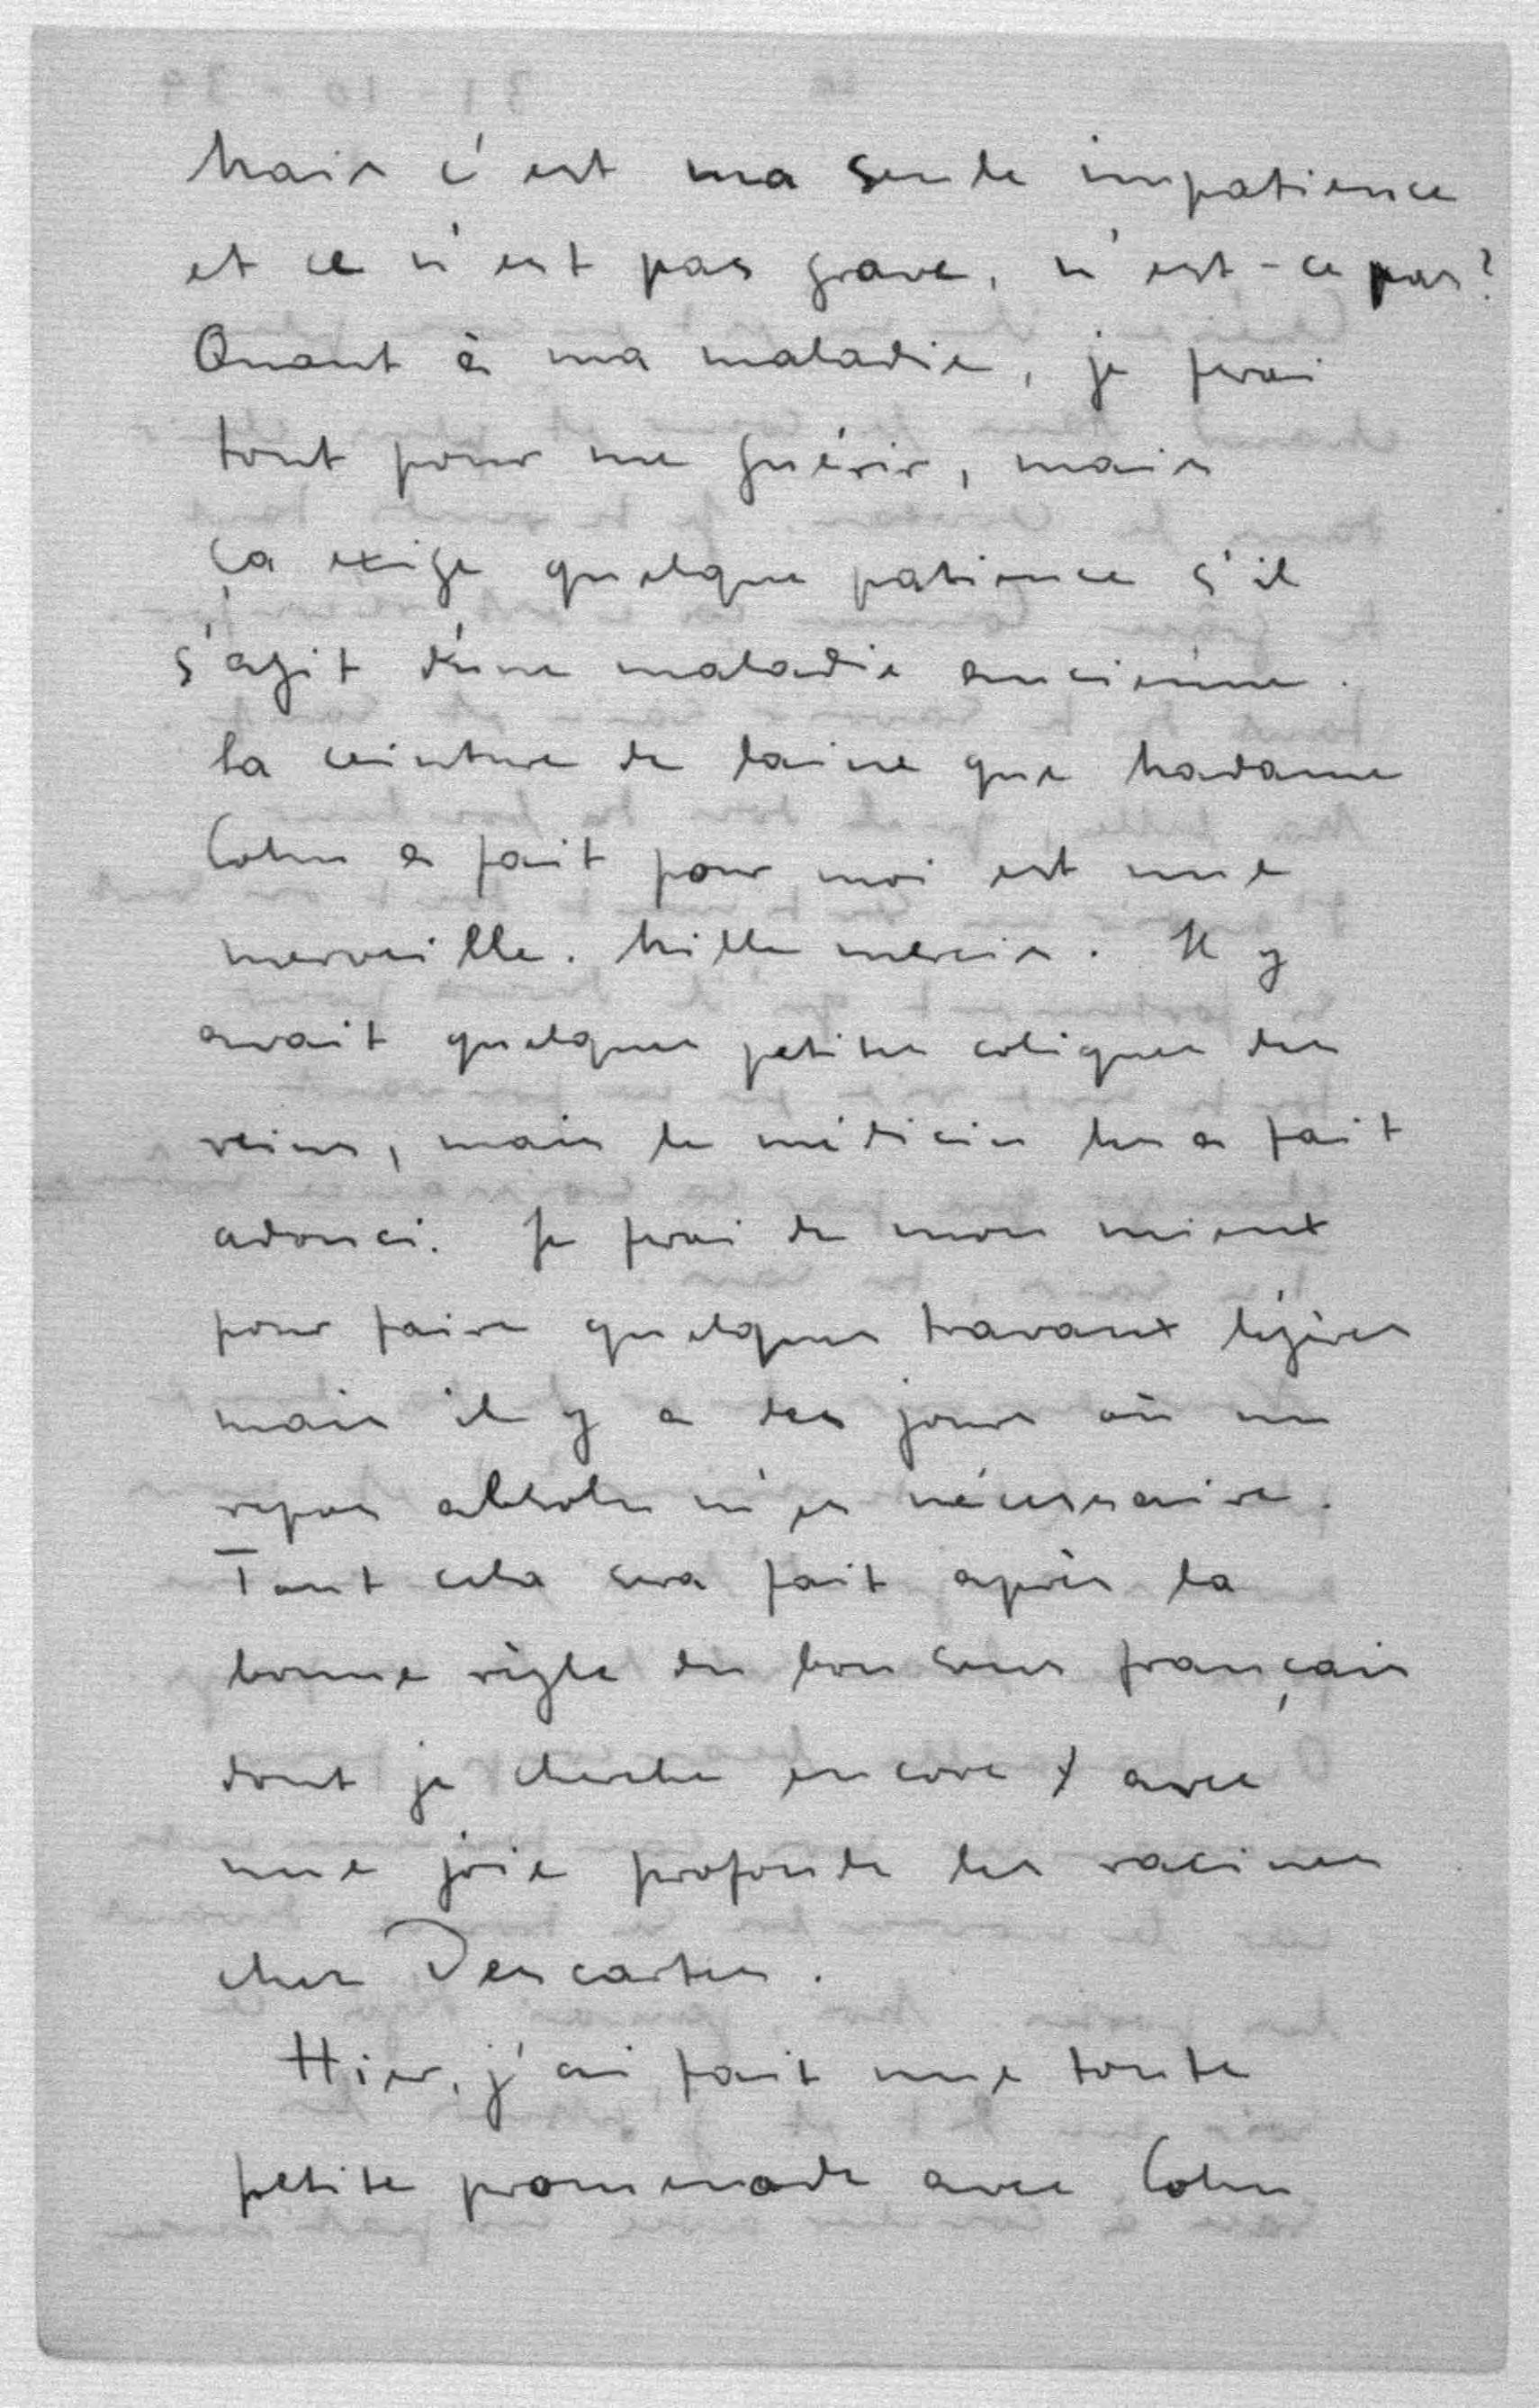 Mais c'est ma seule impatience
et ce n'est pas grave, n'est-ce pas?
Quant à ma maladie, je ferai
tout pour me guérir, mais
ça exige quelque patience s'il
s'agit d'une maladie anciénne.
La ceinture de laine que Madame
Cohn a fait pour moi est une
merveille. Mille mercis. Il y
avait quelques petites coliques des
reins, mais le médicin les a fait
adouci. Je ferai de mon mieux
pour faire quelques travaux légères
mais il y a des jours où un
repos absolu m'es nécessaire.
Tout cela sera fait après la
bonne règle du bon sens français
dont je cherche encore avec
une joie profonde les racines
chez Descartes.
Hier, j'ai fait une toute
petite promenade avec Cohn